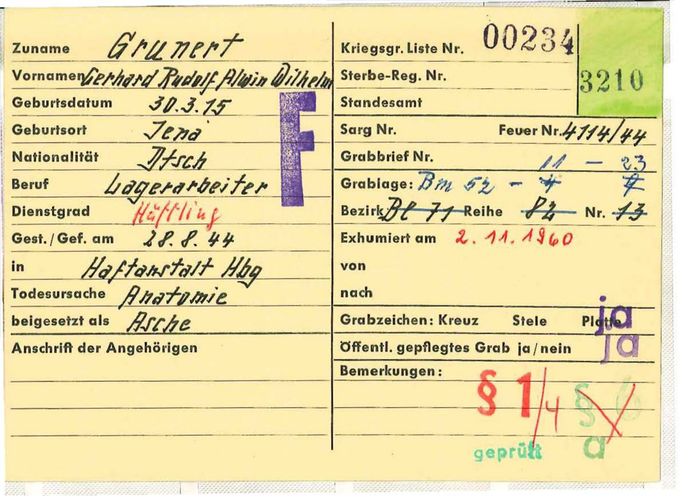 Zuname Grunert
Vornamen Gerhard Rudolf Alwin Wilhelm
Geburtsdatum 30.3.15
Geburtsort Jena
Nationalität Dtsch
Beruf Lagerarbeiter
Dienstgrad Häftling
Gest./Gef. am 28.8.44
in Haftanstalt Hbg
Todesursache Anatomie
beigesetzt als Asche
Anschrift der Angehörigen
F
00234
3210
Kriegsgr. Liste Nr.
Sterbe-Reg. Nr.
Standesamt
Sarg Nr. Feuer Nr. 4114/44
Grabbrief Nr.
11 - 23
Grablage: Bm 52 -
Bezirk Bl 71 Reihe 82 Nr. 13
Exhumiert am 2.11.1960
von
nach
Grabzeichen: Kreuz Stele Platte ja
Öffentl. gepflegtes Grab ja/nein ja
Bemerkungen:
§ 1/4 § 6
a
geprüft